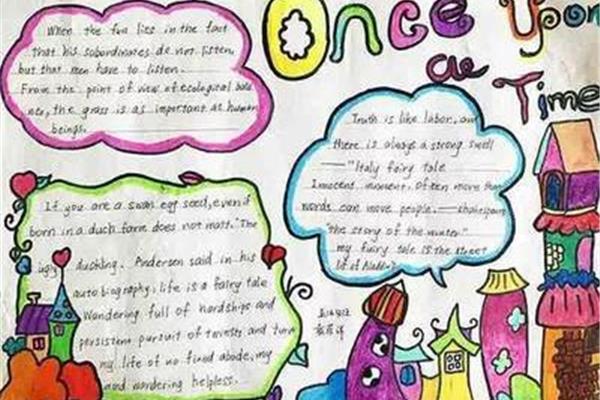 Once Upon
a Time
When the fun lies in the fact
that his subordinates do not listen,
but that men have to listen.
From the point of view of ecological bala
nce, the grass is as important as human
beings.
Truth is like labor, an
there is always a strong smell
—"Italy fairy tale
Innocent moment. Often more than
words can move people. —shakespear
"the story of the winter"
my fairy tale is the street
lot of Aladdin
If you are a swan egg seed, even if
born in a duch farm does not matt. "The
ugly duchling. Andersen said in his
autobiography, life is a fairy tale
Wandering full of hardships and
persistent pursuit of and turn
my life of no fixed abode, my
and wandering helpless.